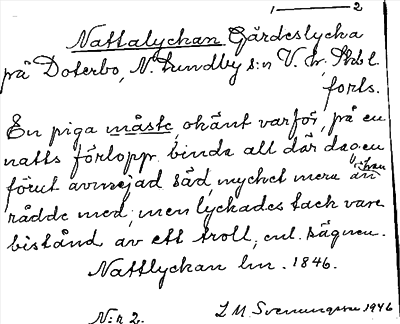 1 —— 2
Nattalyckan. Gärdeslycka
på Doterbo, N. Lundby s:n V. Gr. Skbl.
forts.
En piga måste, okänt varför, på en
natts förlopp binda all där dagen
förut avmejad säd, mycket mera än hon
rådde med; men lyckades tack vare
bistånd av ett troll, enl. sägnen.
Nattlyckan lm. 1846.
N:r 2. L M. Svenungsson 1946